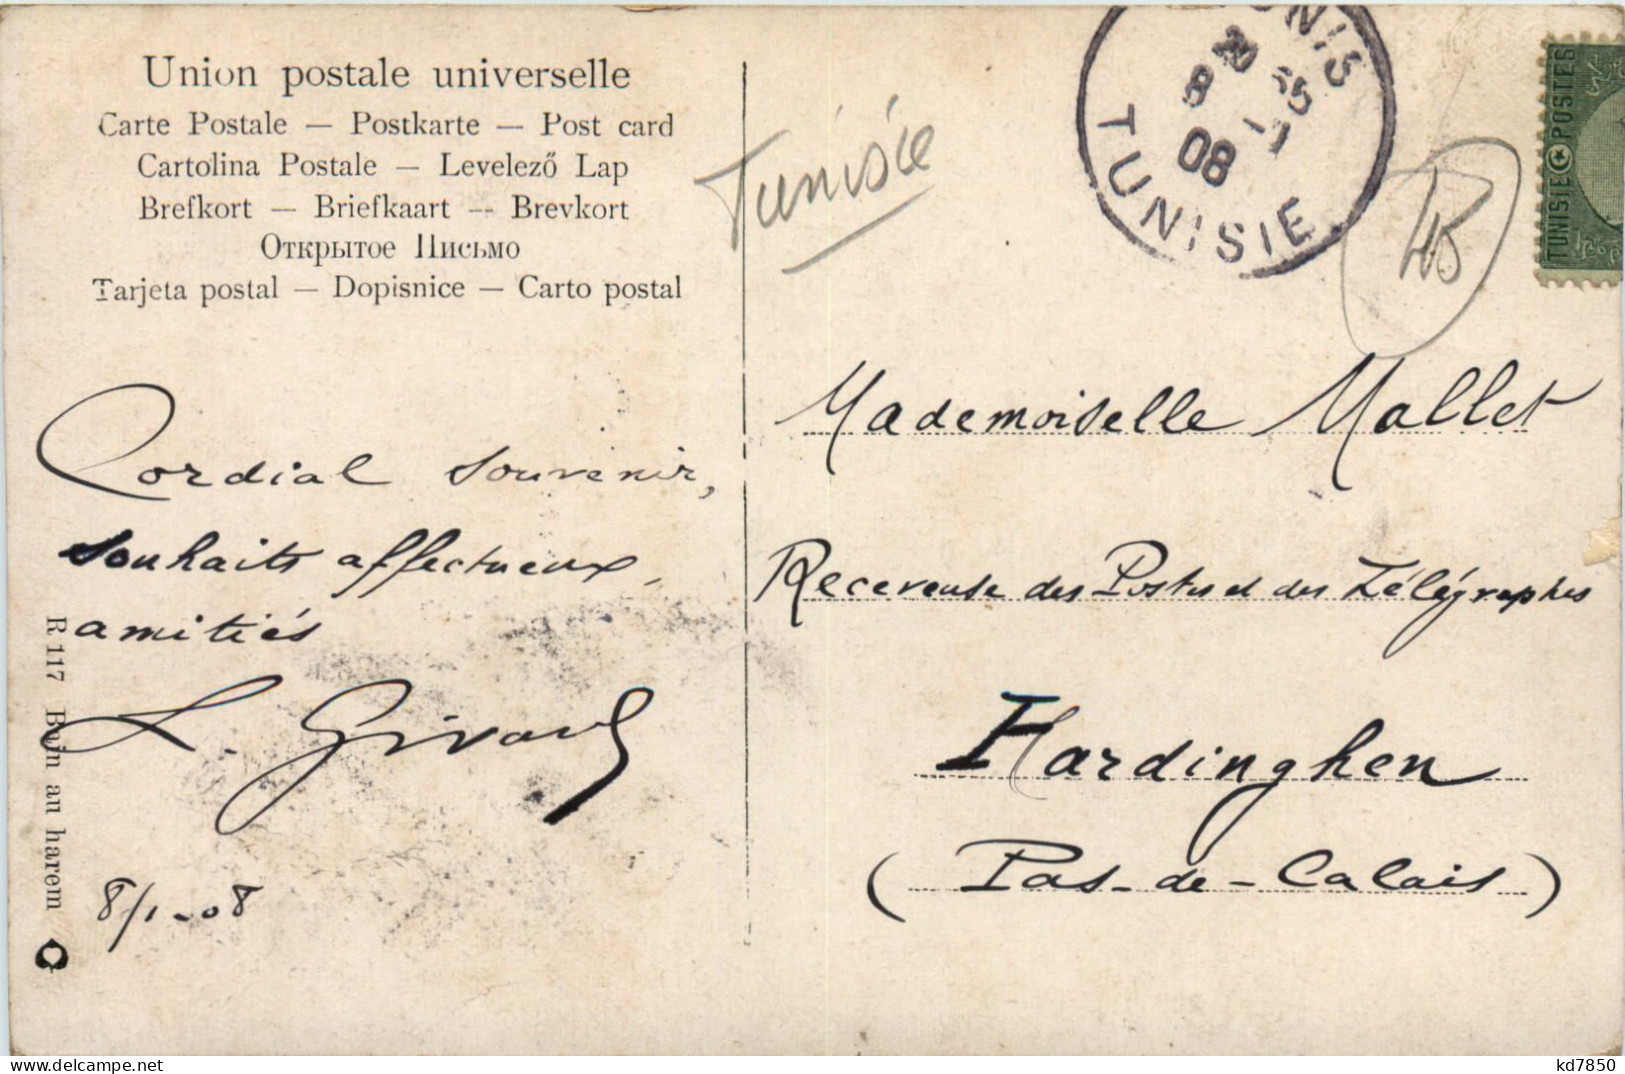 Union postale universelle
Carte Postale — Postkarte — Post card
Cartolina Postale — Levelező Lap
Brefkort — Briefkaart -- Brevkort
Открытое Письмо
Tarjeta postal — Dopisnice — Carto postal
Tunisie
TUNIS
8 -1
08
TUNISIE
TUNISIE POSTES
Mademoiselle Mallet
Receveuse des Postes et des Télégraphes
Hardinghen
(Pas-de-Calais)
Cordial souvenir,
souhaits affectueux,
amitiés
L. Girard
8/1-08
R 117 Bain au harem
www.delcampe.net
kd7850